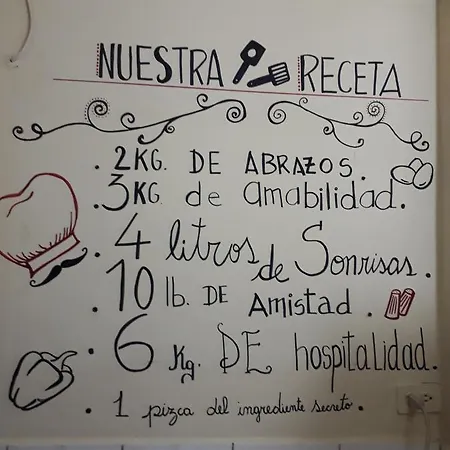 NUESTRA RECETA
. 2KG. DE ABRAZOS.
. 3KG de amabilidad.
. 4 litros de Sonrisas.
. 10 lb. DE Amistad.
. 6 Kg. DE hospitalidad.
. 1 pizca del ingrediente secreto.